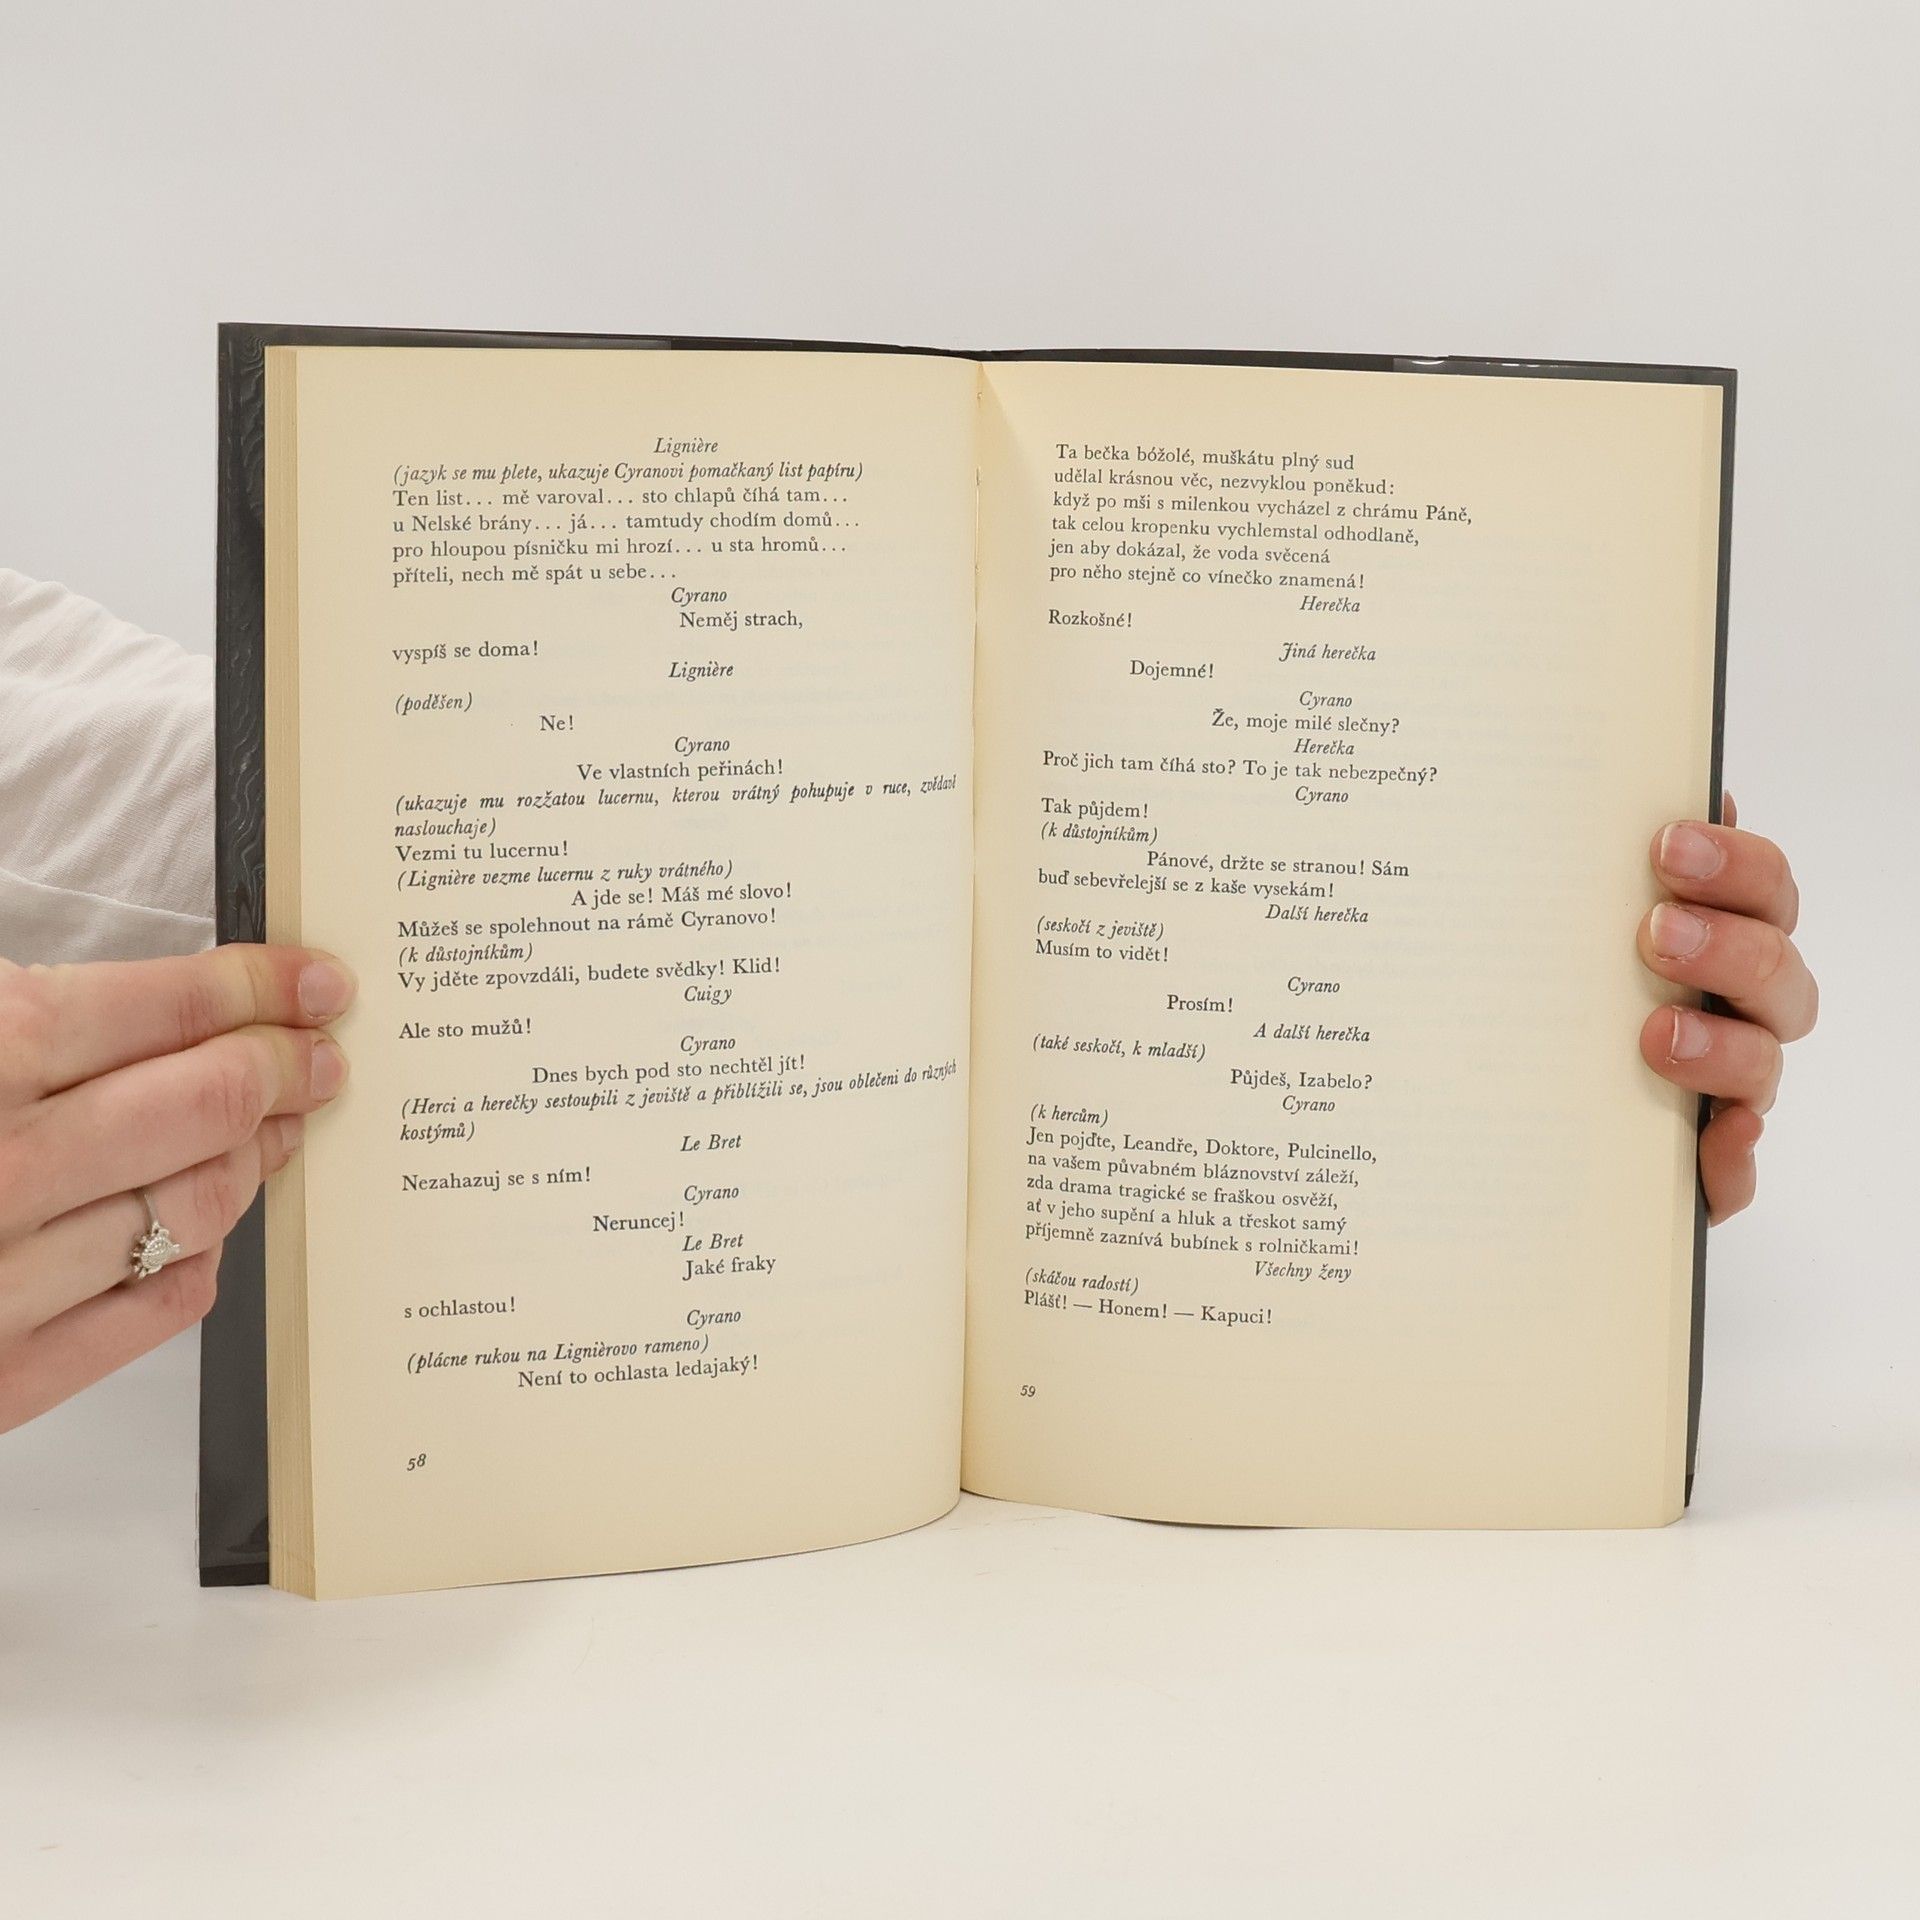 Lignière
(jazyk se mu plete, ukazuje Cyranovi pomačkaný list papíru)
Ten list... mě varoval... sto chlapů číhá tam...
u Nelské brány... já... tamtudy chodím domů...
pro hloupou písničku mi hrozí... u sta hromů...
příteli, nech mě spát u sebe...
Cyrano
Neměj strach,
vyspíš se doma!
Lignière
(poděšen)
Ne!
Cyrano
Ve vlastních peřinách!
(ukazuje mu rozžatou lucernu, kterou vrátný pohupuje v ruce, zvědavě
naslouchaje)
Vezmi tu lucernu!
(Lignière vezme lucernu z ruky vrátného)
A jde se! Máš mé slovo!
Můžeš se spolehnout na rámě Cyranovo!
(k důstojníkům)
Vy jděte zpovzdáli, budete svědky! Klid!
Cuigy
Ale sto mužů!
Cyrano
Dnes bych pod sto nechtěl jít!
(Herci a herečky sestoupili z jeviště a přiblížili se, jsou oblečeni do různých
kostýmů)
Le Bret
Nezahazuj se s ním!
Cyrano
Neruncej!
Le Bret
Jaké fraky
s ochlastou!
Cyrano
(plácne rukou na Lignièrovo rameno)
Není to ochlasta ledajaký!
58
Ta bečka bóžolé, muškátu plný sud
udělal krásnou věc, nezvyklou poněkud:
když po mši s milenkou vycházel z chrámu Páně,
tak celou kropenku vychlemstal odhodlaně,
jen aby dokázal, že voda svěcená
pro něho stejně co vínečko znamená!
Herečka
Rozkošné!
Jiná herečka
Dojemné!
Cyrano
Že, moje milé slečny?
Herečka
Proč jich tam číhá sto? To je tak nebezpečný?
Cyrano
Tak půjdem!
(k důstojníkům)
Pánové, držte se stranou! Sám
buď sebevřelejší se z kaše vysekám!
Další herečka
(seskočí z jeviště)
Musím to vidět!
Cyrano
Prosím!
A další herečka
(také seskočí, k mladší)
Půjdeš, Izabelo?
Cyrano
(k hercům)
Jen pojďte, Leandře, Doktore, Pulcinello,
na vašem půvabném bláznovství záleží,
zda drama tragické se fraškou osvěží,
ať v jeho supění a hluk a třeskot samý
příjemně zaznívá bubínek s rolničkami!
Všechny ženy
(skáčou radostí)
Plášť! — Honem! — Kapuci!
59